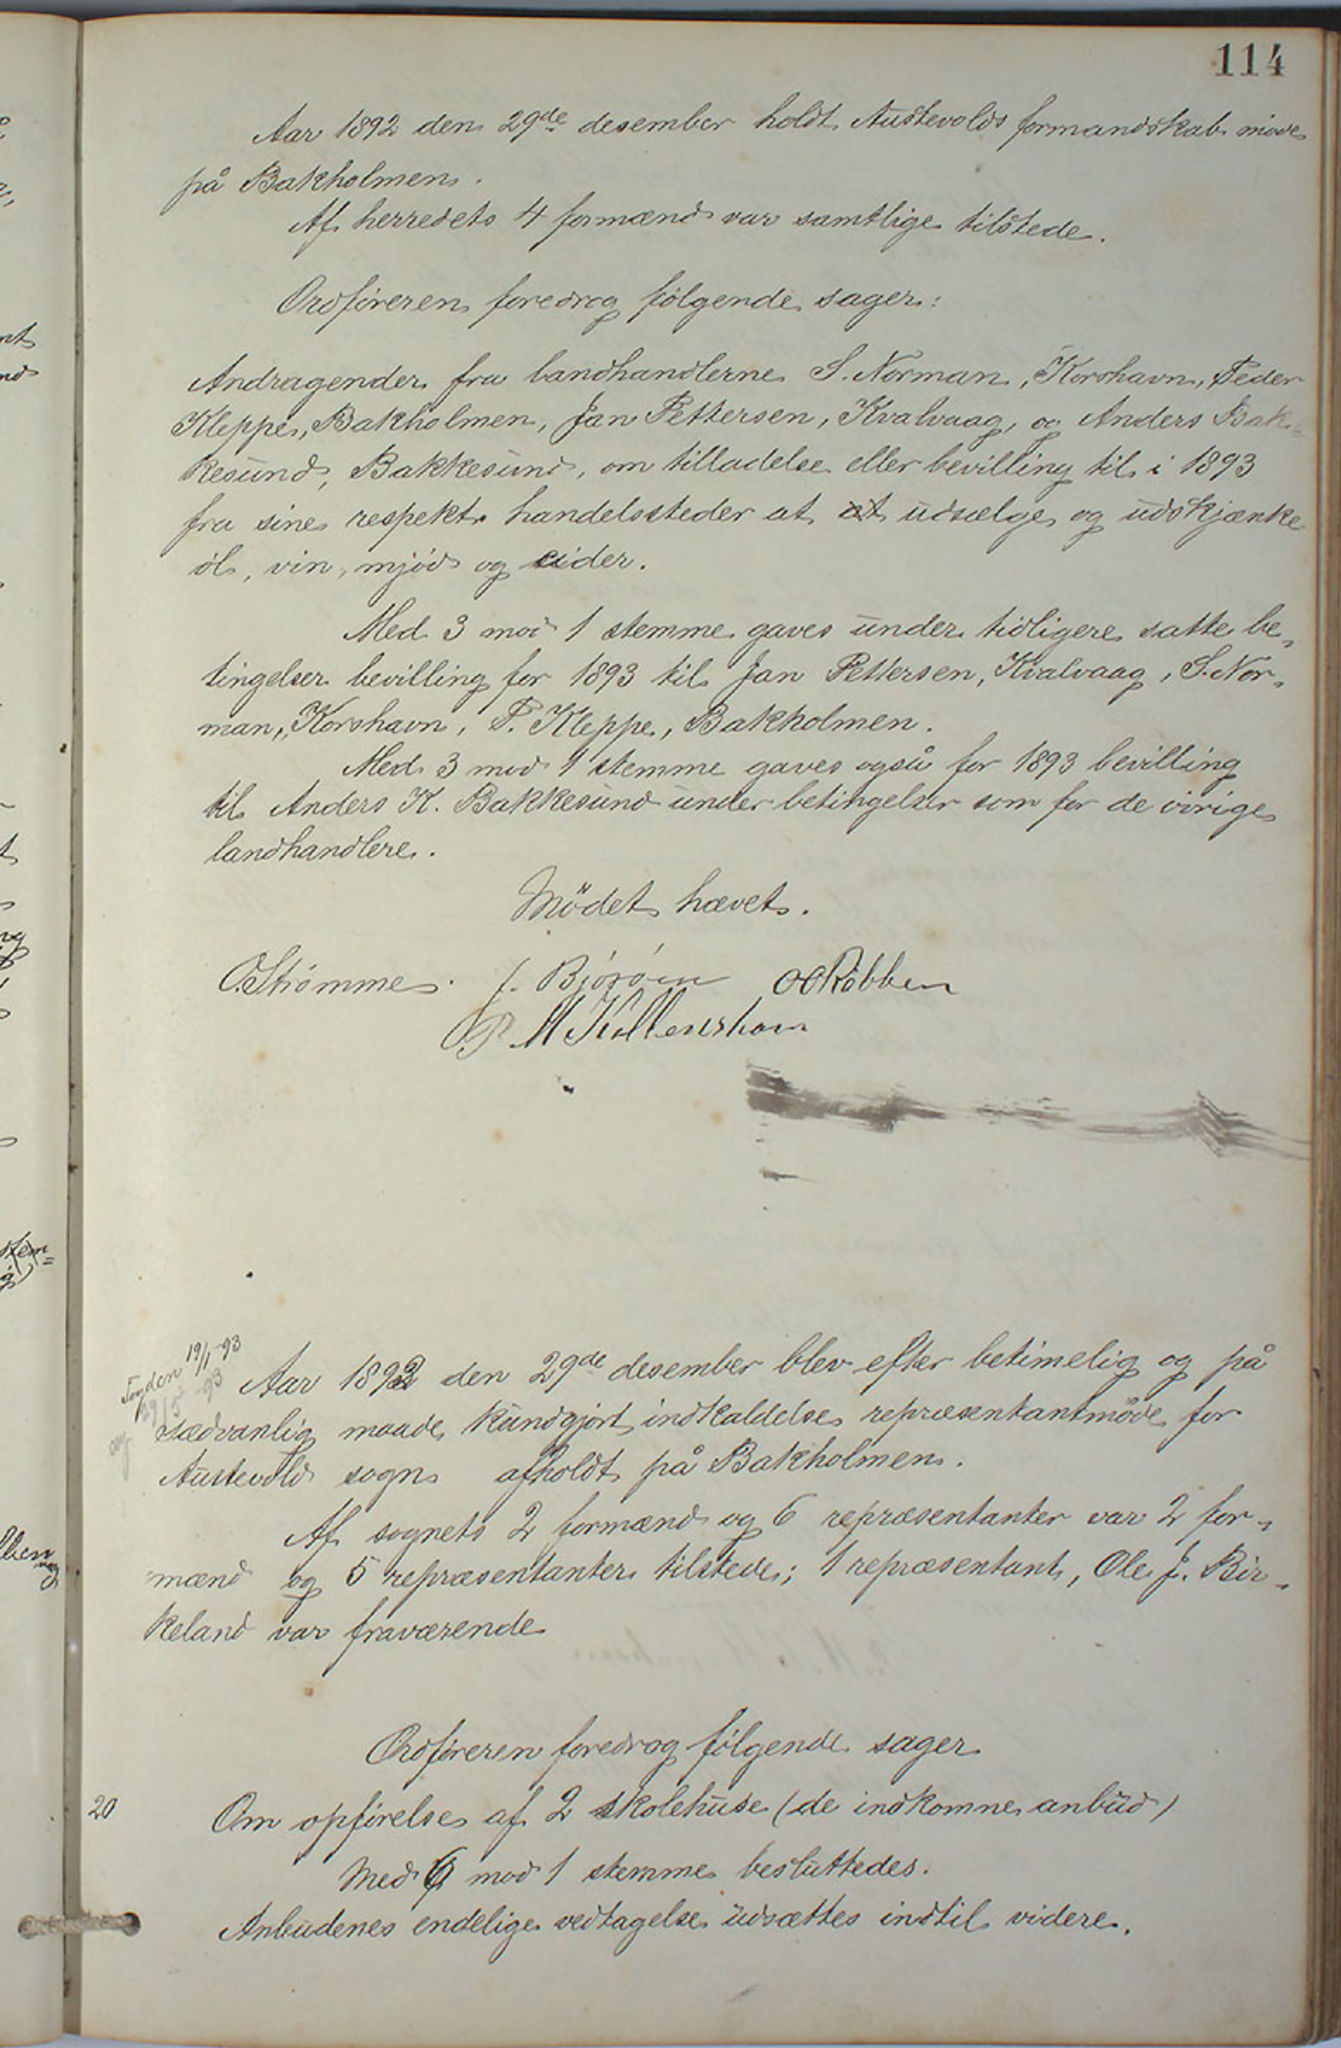 114
Aar 1892 den 29de desember holdt Austevolds formandskab møde
på Bakholmen.
Af herredets 4 formænd var samtlige tilstede.
Ordføreren foredrog følgende sager:
Andragender fra landhandlerne S. Norman, Korshavn, Peder
Kleppe, Bakholmen, Jan Pettersen, Kvalvaag, og Anders Bak-
kesund, Bakkesund, om tilladelse eller bevilling til i 1893
fra sine respekt. handelssteder at at udsælge og udskjænke
øl, vin, mjød og cider.
Med 3 mod 1 stemme gaves under tidligere satte be-
tingelser bevilling for 1893 til Jan Pettersen, Kvalvaag, S. Nor-
man, Korshavn, P. Kleppe, Bakholmen.
Med 3 mod 1 stemme gaves også for 1893 bevilling
til Anders K. Bakkesund under betingelser som for de øvrige
landhandlere.
Mödet hævet.
O. Strømme. J. Bjørøen OO Røbben
P. M Kallenshavn
Fogden 19/1-93
29/5 93
Aar 1892 den 29de desember blev efter betimelig og på
sædvanlig maade kundgjort indkaldelse repræsentantmöde for
Austevold sogn afholdt på Bakholmen.
Af sognets 2 formænd og 6 repræsentanter var 2 for-
mænd og 5 repræsentanter tilstede; 1 repræsentant, Ole J. Bir-
keland var fraværende
Ordføreren foredrog følgende sager
20 Om opførelse af 2 skolehuse (de indkomne anbud)
Med 6 mod 1 stemme besluttedes.
Anbudenes endelige vedtagelse udsættes indtil videre.